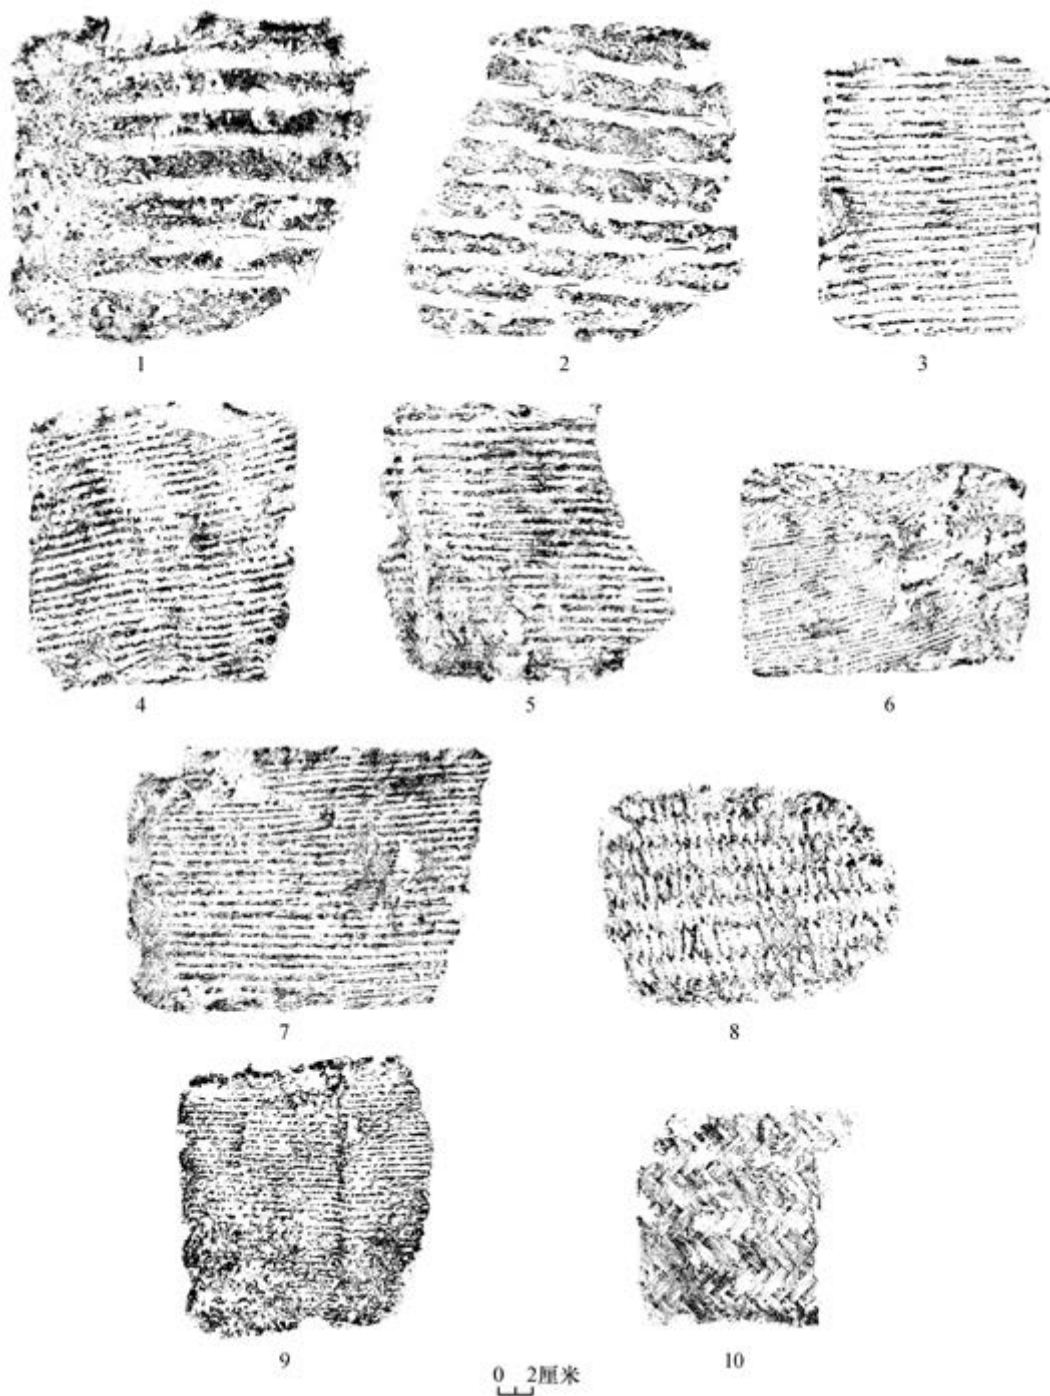 1
2
3
4
5
6
7
8
9
10
0 2厘米